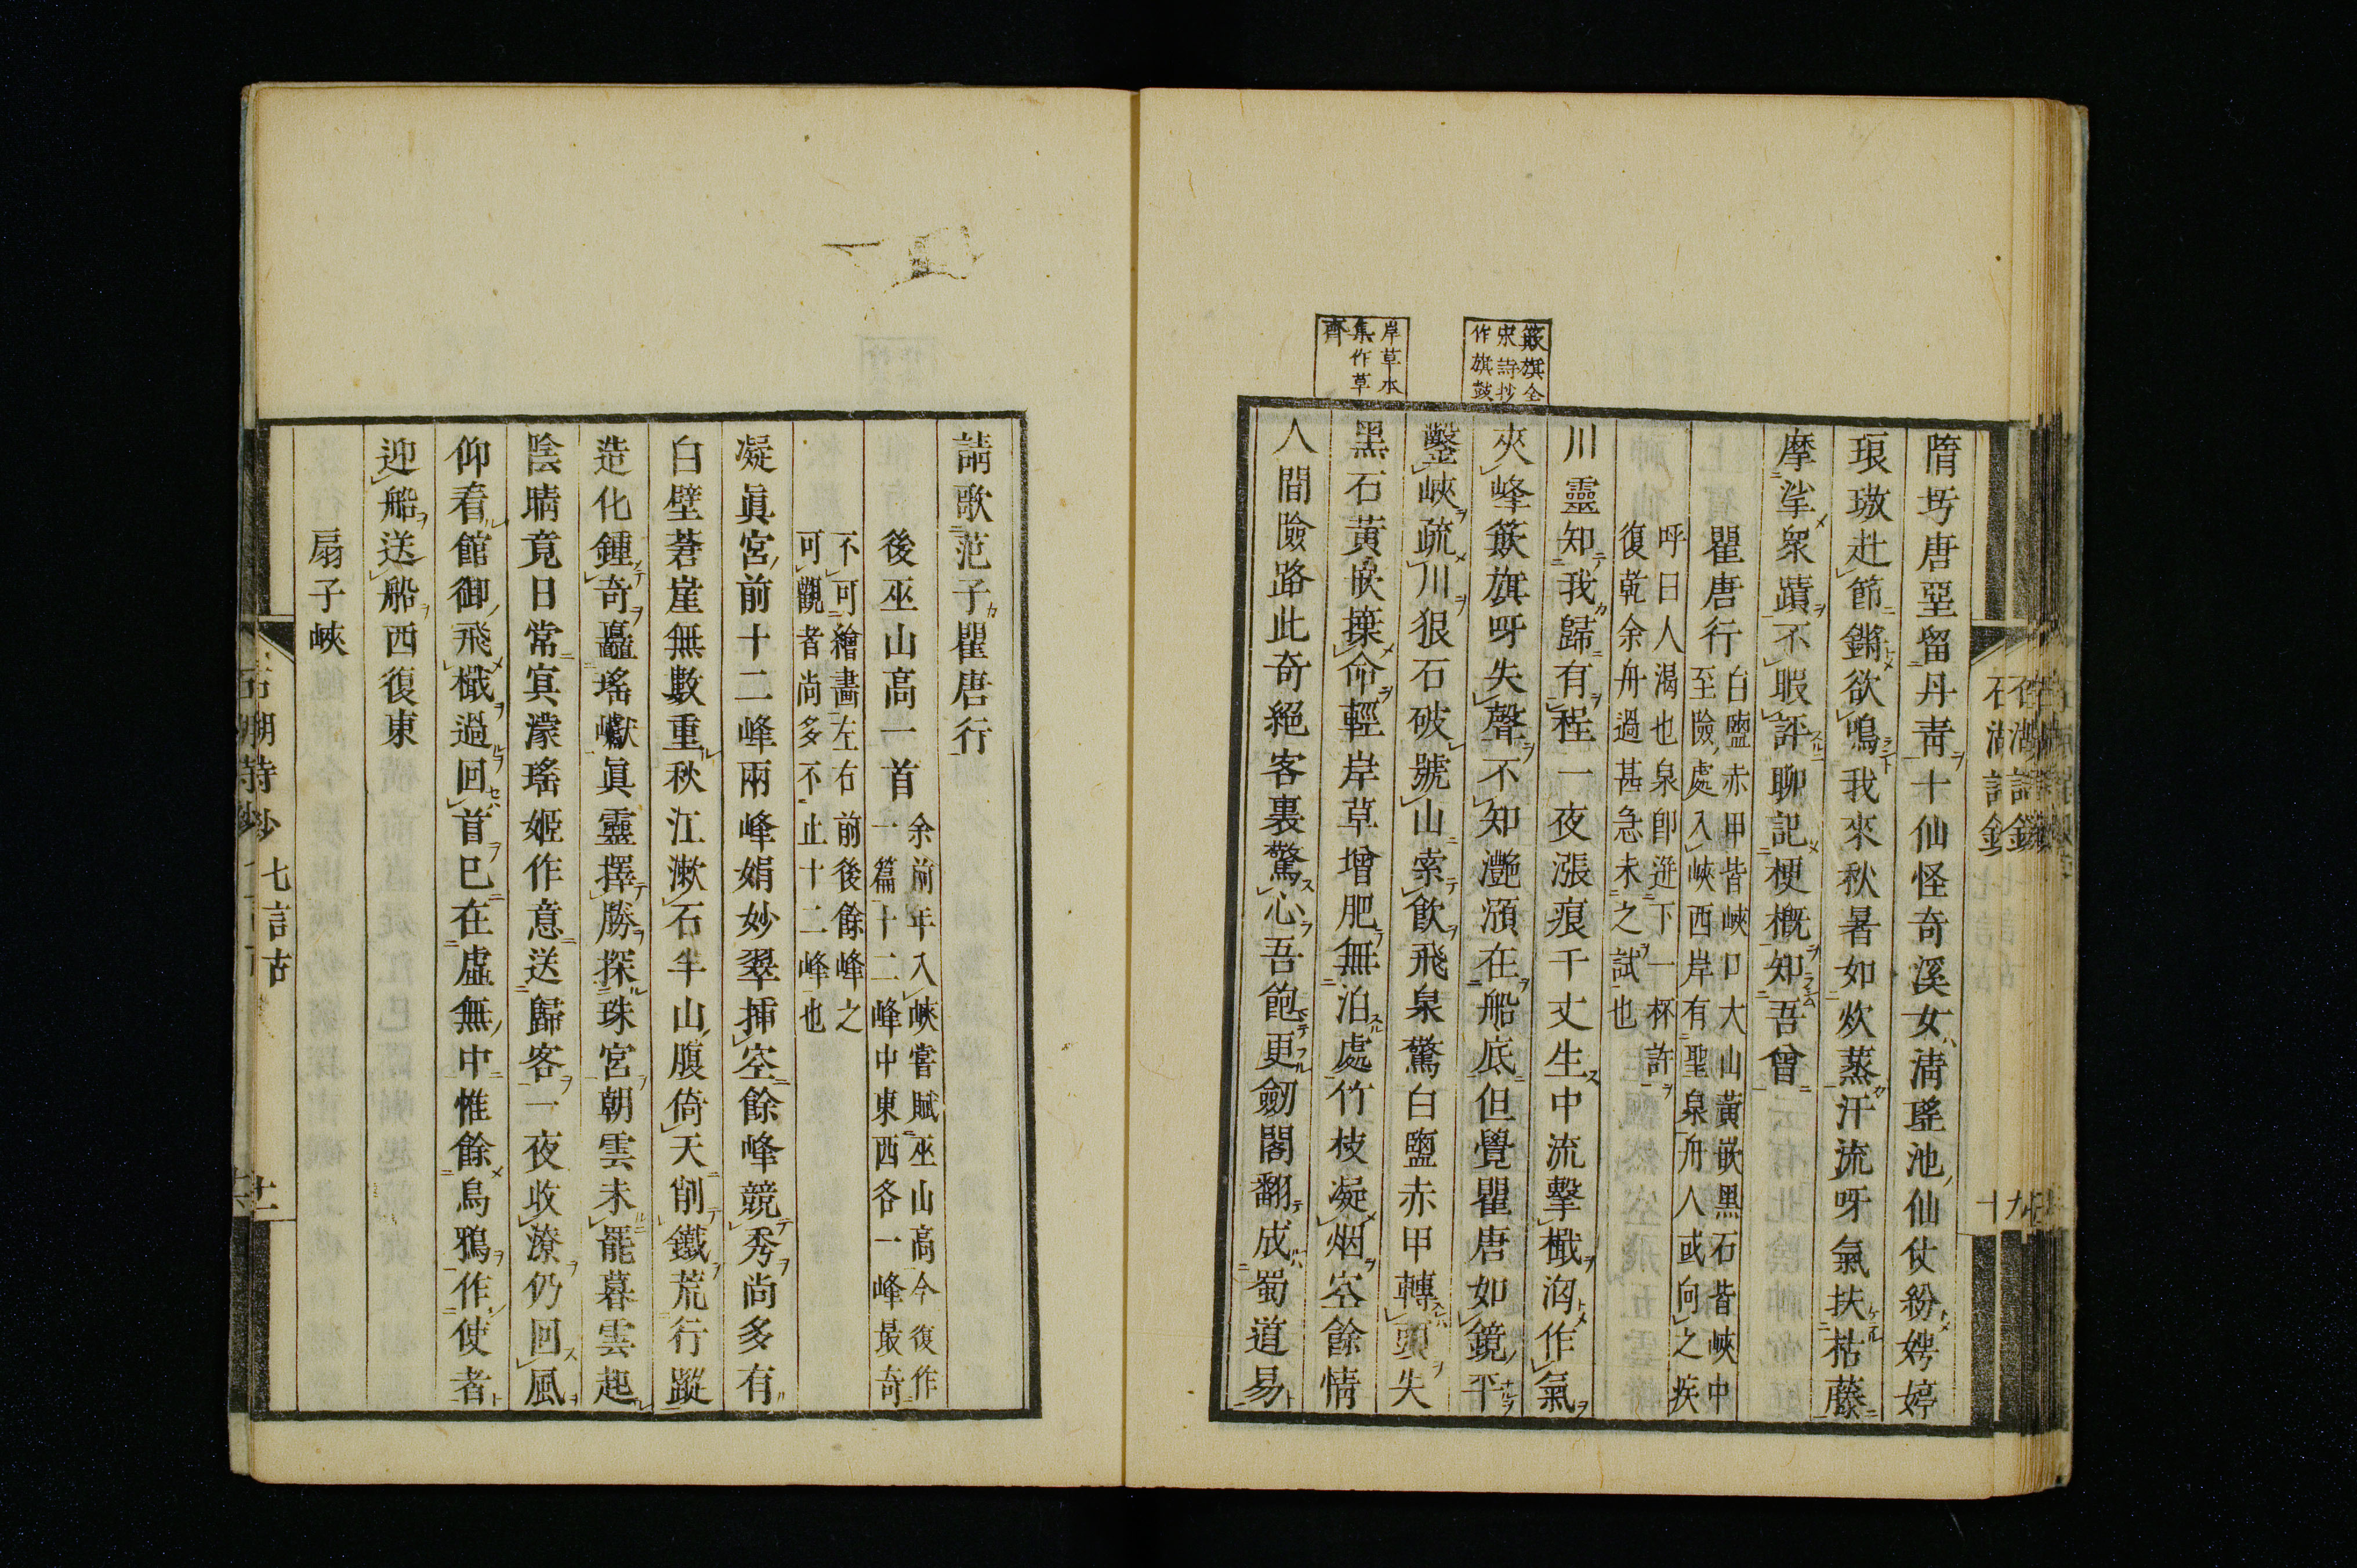 簸旗全
宋詩抄
作旗鼓
岸草本
集作草
齊
隋圬唐堊留丹靑十仙怪奇溪女淸瑤池仙仗紛娉婷
琅璈赴節鏘欲鳴我來秋暑如炊蒸汗流呀氣扶枯藤
摩挲衆蹟不暇評聊記梗槪知吾曾
瞿唐行
白鹽赤甲皆峽口大山黃嵌黑石皆峽中
至險處入峽西岸有聖泉舟人或向之疾
呼曰人渴也泉卽迸下一杯許
復乾余舟過甚急未之試也
川靈知我歸有程一夜漲痕千丈生中流擊檝汹作氣
夾峰簸旗呀失聲不知灧澦在船底但覺瞿唐如鏡平
鑿峽疏川狠石破號山索飮飛泉驚白鹽赤甲轉頭失
黑石黃嵌棄命輕岸草增肥無泊處竹枝凝烟空餘情
人間險路此奇絕客裏驚心吾飽更劒閣翻成蜀道易
請歌范子瞿唐行
後巫山高一首
余前年入峽嘗賦巫山高今復作
一篇十二峰中東西各一峰最奇
不可繪畵左右前後餘峰之
可觀者尚多不止十二峰也
凝眞宮前十二峰兩峰娟妙翠揷空餘峰競秀尚多有
白壁蒼崖無數重秋江漱石半山腹倚天削鐵荒行蹤
造化鍾奇矗瑤巘眞靈擇勝探珠宮朝雲未罷暮雲起
陰晴竟日常冥濛瑤姬作意送歸客一夜收潦仍回風
仰看館御飛檝過回首已在虛無中惟餘烏鴉作使者
迎船送船西復東
扇子峽
七言古